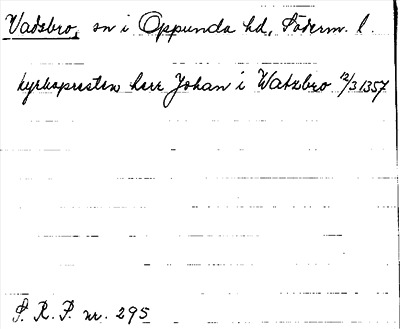 Vadsbro, sn i Oppunda hd, Söderm. l.
kyrkopresten herr Johan i Watzbro 12/3 1357
S. R. P. nr. 295